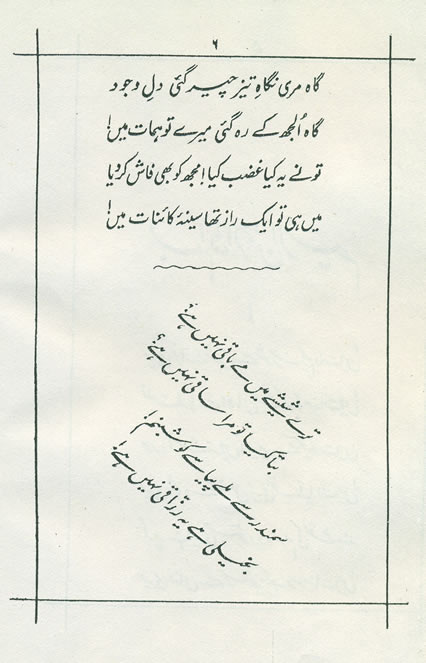 ۶
گاہ مری نگاہِ تیز چیر گئی دلِ وجود
گاہ اُلجھ کے رہ گئی میرے توہمات میں!
تو نے یہ کیا غضب کیا! مجھ کو بھی فاش کر دیا
میں ہی تو ایک راز تھا سینۂ کائنات میں!
ترے شیشے میں مے باقی نہیں ہے؟
بتا، کیا تو مرا ساقی نہیں ہے؟
سمندر سے ملے پیاسے کو شبنم!
بخیلی ہے یہ رزّاقی نہیں ہے!